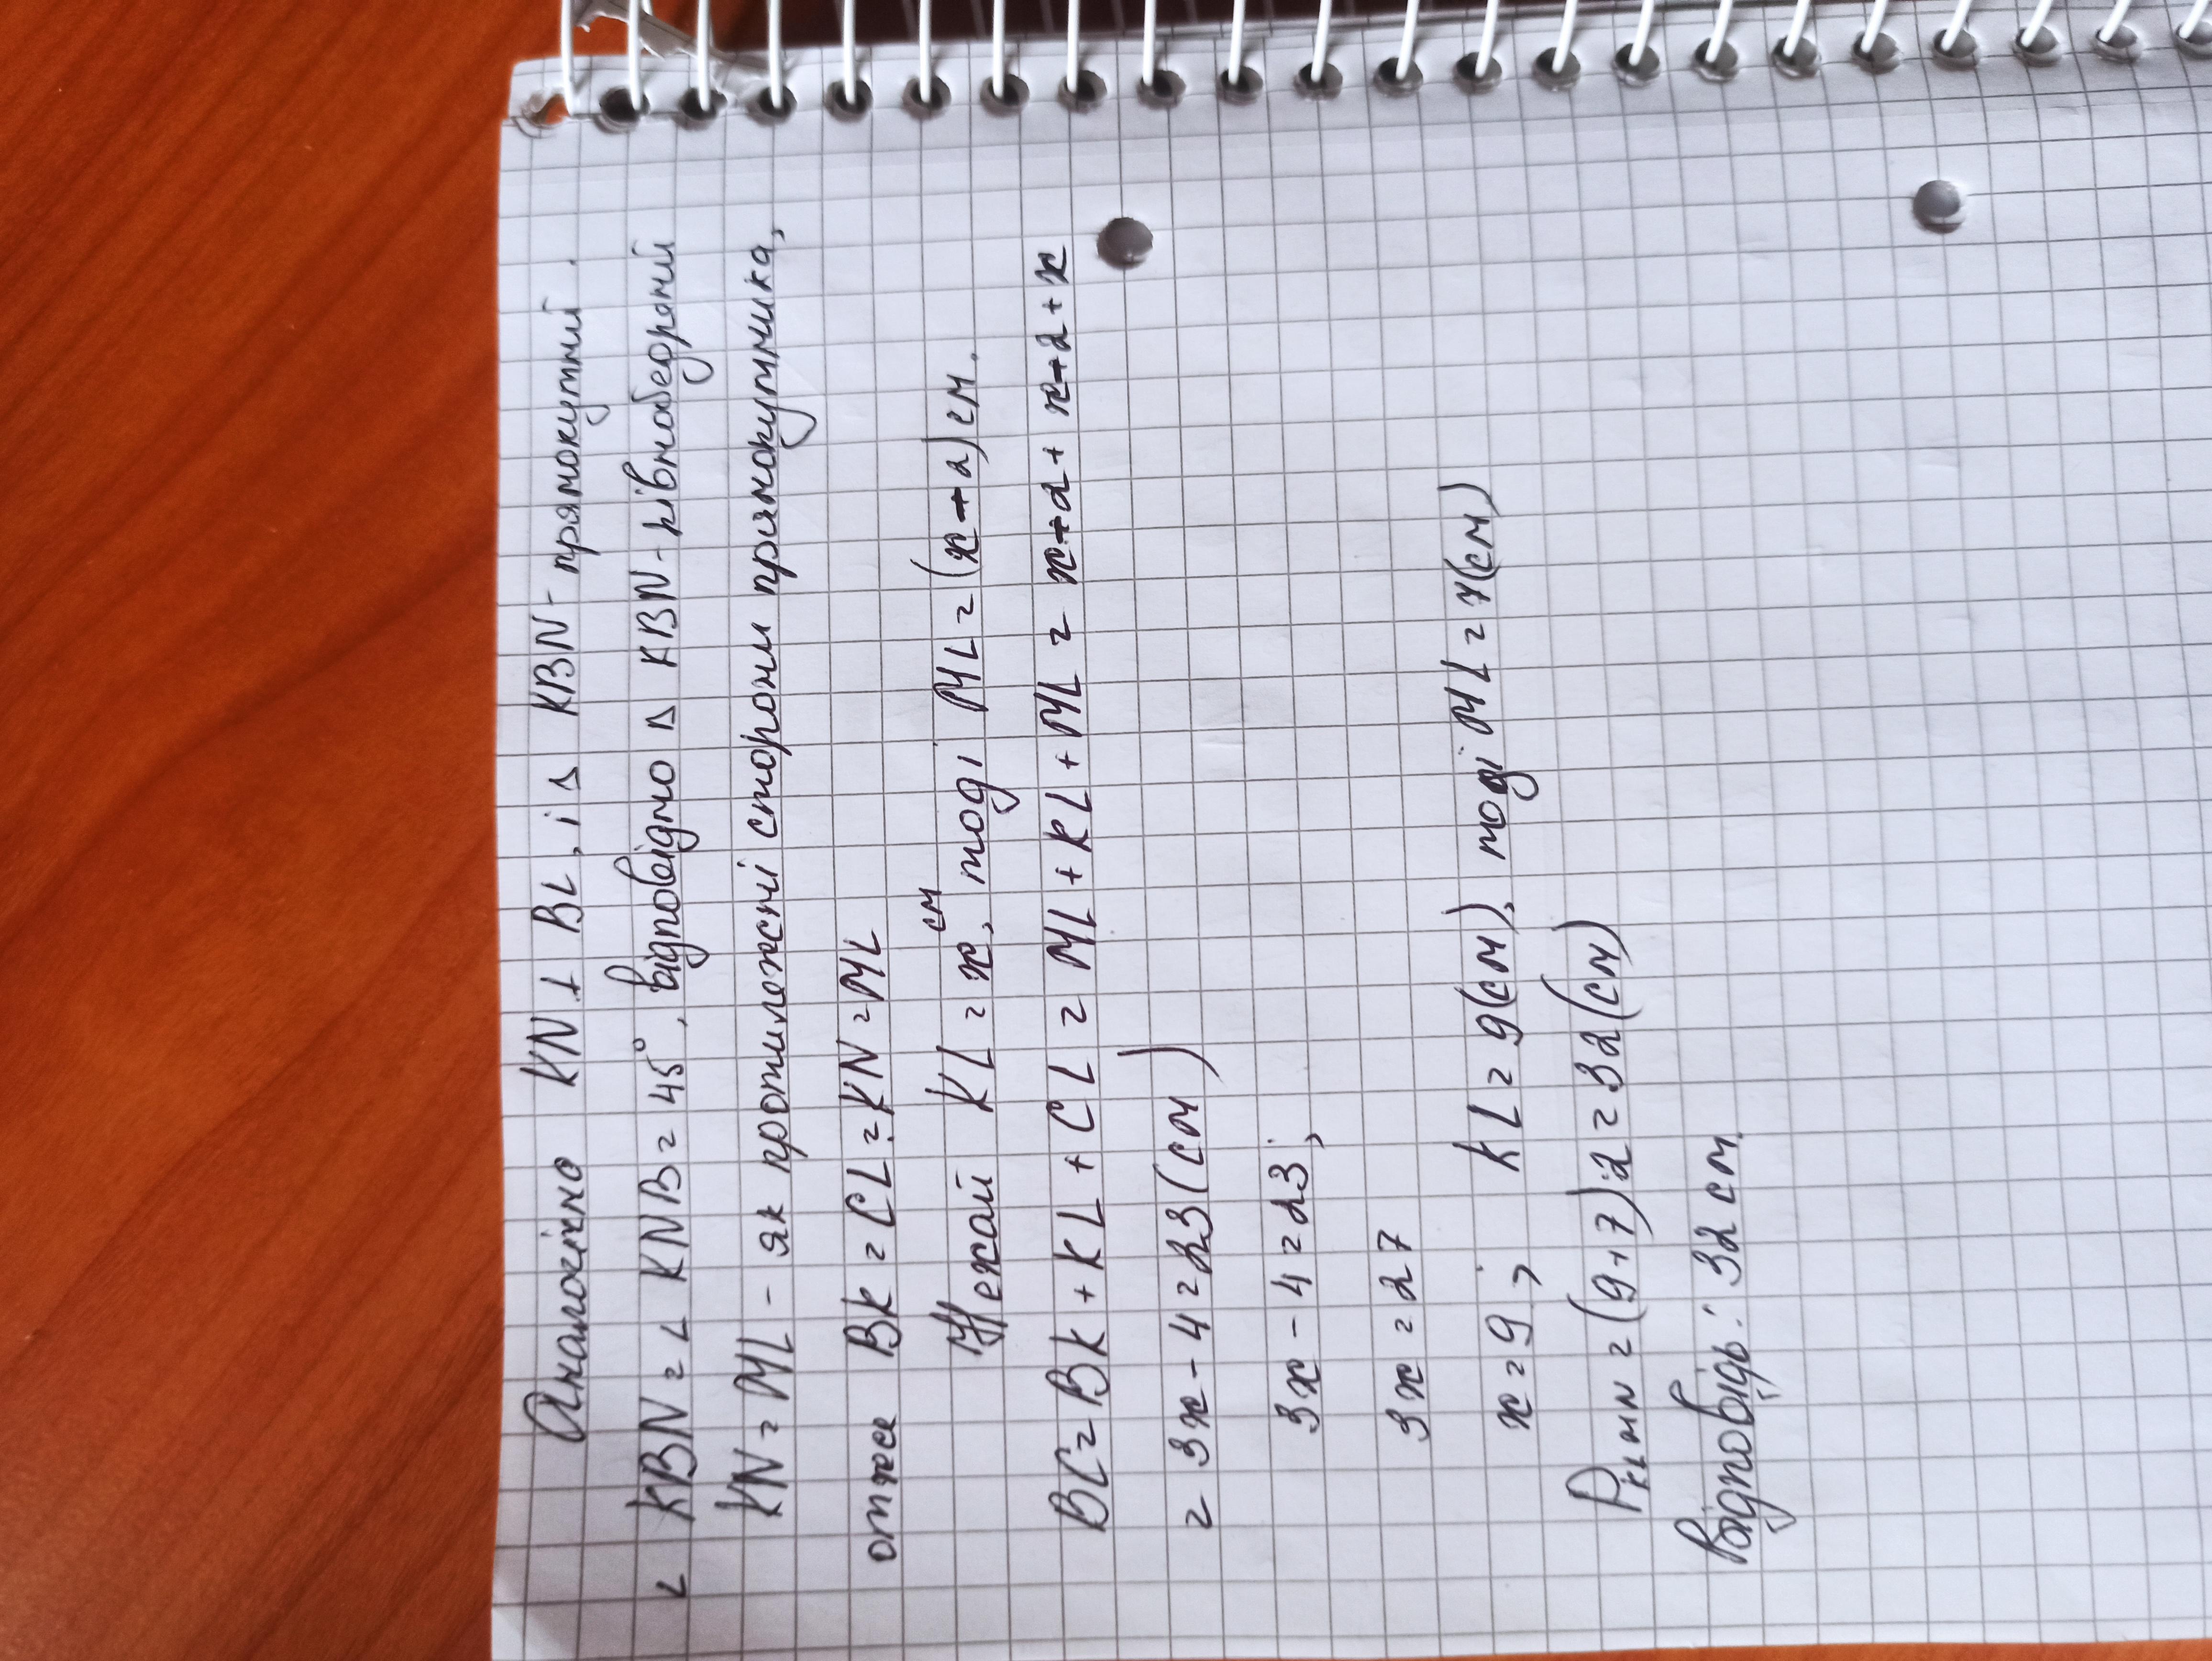 Аналогічно KN ⊥ BL, і Δ KBN - прямокутний.
∠ KBN = ∠ KNB = 45°. відповідно Δ KBN - рівнобедрений
KN = ML - як протилежні сторони прямокутника,
отже BK = CL = KN = ML
Нехай KL = x см, тоді ML = (x-2) см.
BC = BK + KL + CL = ML + KL + ML = x-2 + x-2 + x
= 3x - 4 = 23 (см)
3x - 4 = 23;
3x = 27
x = 9; KL = 9 (см), тоді ML = 7 (см)
P KLMN = (9+7)·2 = 32 (см)
Відповідь: 32 см.